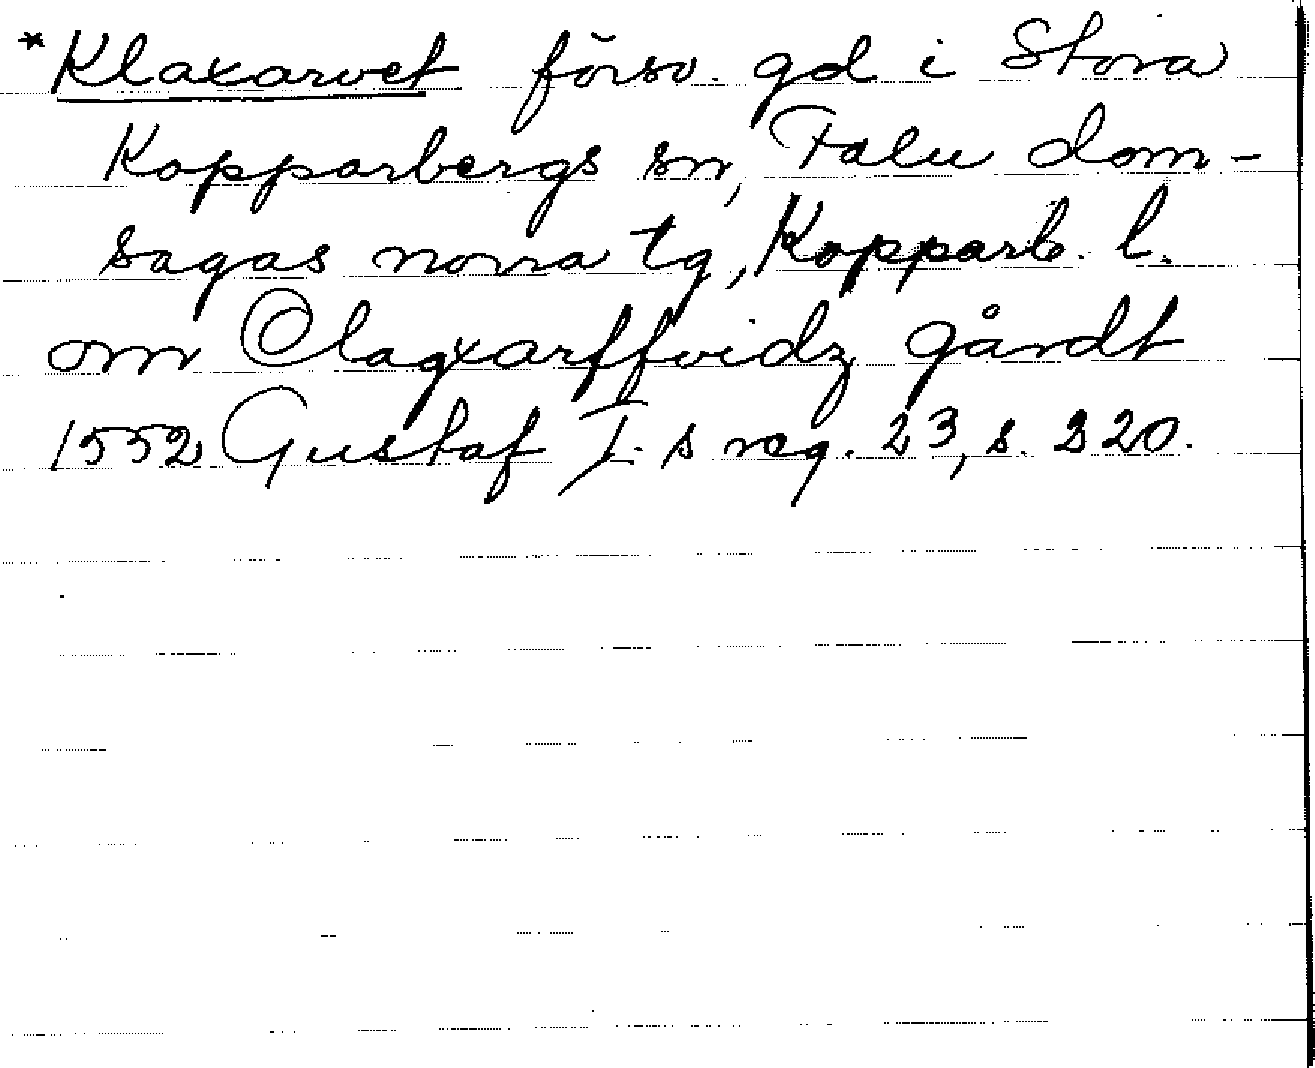 *Klaxarvet försv. gd i Stora
Kopparbergs sn, Falu dom-
sagas norra tg, Kopparb. l.
om Clagxarffvidz gårdt
1552 Gustaf I.s reg. 23, s. 320.